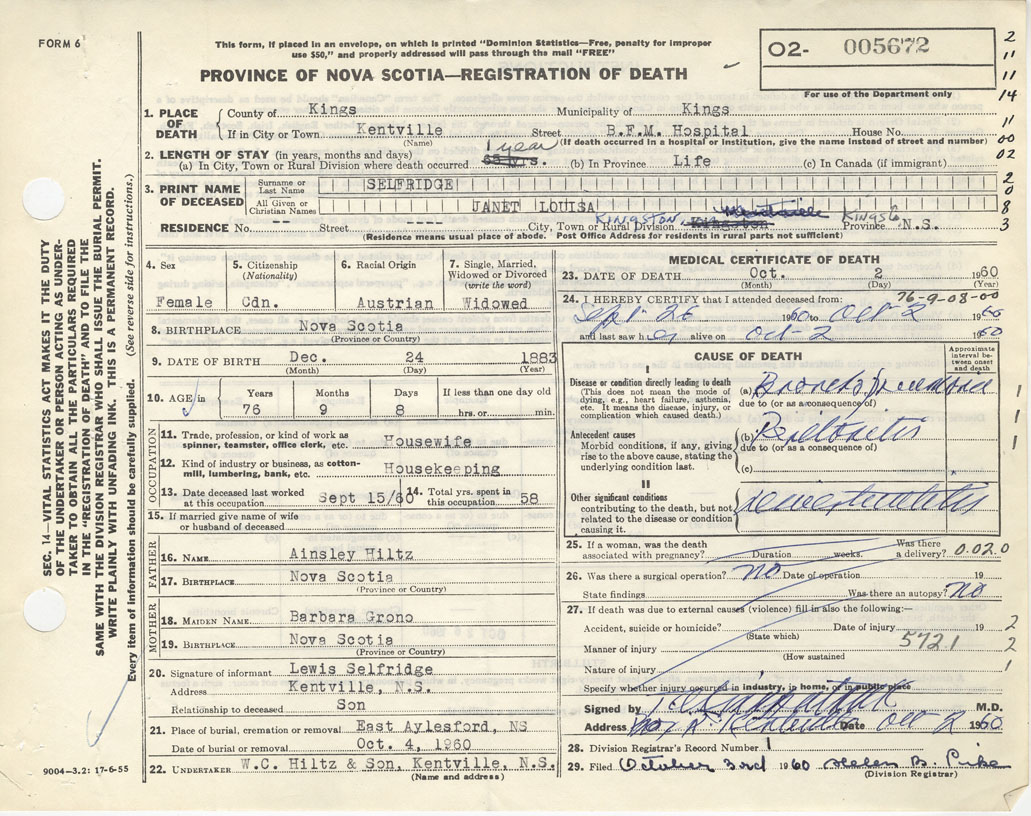 FORM 6
This form, if placed in an envelope, on which is printed "Dominion Statistics—Free, penalty for improper
use $50," and properly addressed will pass through the mail "FREE"
PROVINCE OF NOVA SCOTIA—REGISTRATION OF DEATH
O2- 005672
For use of the Department only
2
11
11
14
11
00
02
2
0
8
3
1. PLACE OF DEATH
County of Kings Municipality of Kings
If in City or Town Kentville Street B.F.M. Hospital House No.
(Name) (If death occurred in a hospital or institution, give the name instead of street and number)
2. LENGTH OF STAY (in years, months and days)
1 year
(a) In City, Town or Rural Division where death occurred (b) In Province Life (c) In Canada (if immigrant)
3. PRINT NAME OF DECEASED
Surname or Last Name SELFRIDGE
All Given or Christian Names JANET LOUISA
RESIDENCE No. -- Street ---- City, Town or Rural Division KINGSTON Kingston KINGS Province N.S.
(Residence means usual place of abode. Post Office Address for residents in rural parts not sufficient)
4. Sex
Female
5. Citizenship (Nationality)
Cdn.
6. Racial Origin
Austrian
7. Single, Married, Widowed or Divorced (write the word)
Widowed
8. BIRTHPLACE Nova Scotia
(Province or Country)
9. DATE OF BIRTH Dec. 24 1883
(Month) (Day) (Year)
10. AGE in Years Months Days If less than one day old
76 9 8 hrs. or min.
OCCUPATION
11. Trade, profession, or kind of work as spinner, teamster, office clerk, etc. Housewife
12. Kind of industry or business, as cotton-mill, lumbering, bank, etc. Housekeeping
13. Date deceased last worked at this occupation Sept 15/60
14. Total yrs. spent in this occupation 58
15. If married give name of wife or husband of deceased
FATHER
16. NAME Ainsley Hiltz
17. BIRTHPLACE Nova Scotia
(Province or Country)
MOTHER
18. MAIDEN NAME Barbara Grono
19. BIRTHPLACE Nova Scotia
(Province or Country)
20. Signature of informant Lewis Selfridge
Address Kentville, N.S.
Relationship to deceased Son
21. Place of burial, cremation or removal East Aylesford, NS
Date of burial or removal Oct. 4, 1960
22. UNDERTAKER W.C. Hiltz & Son, Kentville, N.S.
(Name and address)
MEDICAL CERTIFICATE OF DEATH
23. DATE OF DEATH Oct. 2 1960
(Month) (Day) (Year)
24. I HEREBY CERTIFY that I attended deceased from: 76-9-08-00
Sept 26 1960 to Oct 2 1960
and last saw her alive on Oct 2 1960
CAUSE OF DEATH
Approximate interval between onset and death
I
Disease or condition directly leading to death
(This does not mean the mode of dying, e.g., heart failure, asthenia, etc. It means the disease, injury, or complication which caused death.)
(a) Bronchopneumonia
due to (or as a consequence of)
Antecedent causes
Morbid conditions, if any, giving rise to the above cause, stating the underlying condition last.
(b) Peritonitis
due to (or as a consequence of)
(c)
II
Other significant conditions
contributing to the death, but not related to the disease or condition causing it.
1
1
1
25. If a woman, was the death associated with pregnancy? Duration weeks. Was there a delivery? 0.020
26. Was there a surgical operation? no Date of operation 19
State findings Was there an autopsy? no
27. If death was due to external causes (violence) fill in also the following:—
Accident, suicide or homicide? Date of injury 19 2
(State which)
Manner of injury 572.1 2
(How sustained
Nature of injury 1
Specify whether injury occurred in industry, in home, or in public place
Signed by M.D.
Address Kentville Date Oct 2 1960
28. Division Registrar's Record Number 1
29. Filed October 3rd 1960 Helen B. Pike
(Division Registrar)
SEC. 14—VITAL STATISTICS ACT MAKES IT THE DUTY
OF THE UNDERTAKER OR PERSON ACTING AS UNDER-
TAKER TO OBTAIN ALL THE PARTICULARS REQUIRED
IN THE "REGISTRATION OF DEATH" AND TO FILE THE
SAME WITH THE DIVISION REGISTRAR WHO SHALL ISSUE THE BURIAL PERMIT.
WRITE PLAINLY WITH UNFADING INK. THIS IS A PERMANENT RECORD.
Every item of information should be carefully supplied. (See reverse side for instructions.)
9004—3.2: 17-6-55